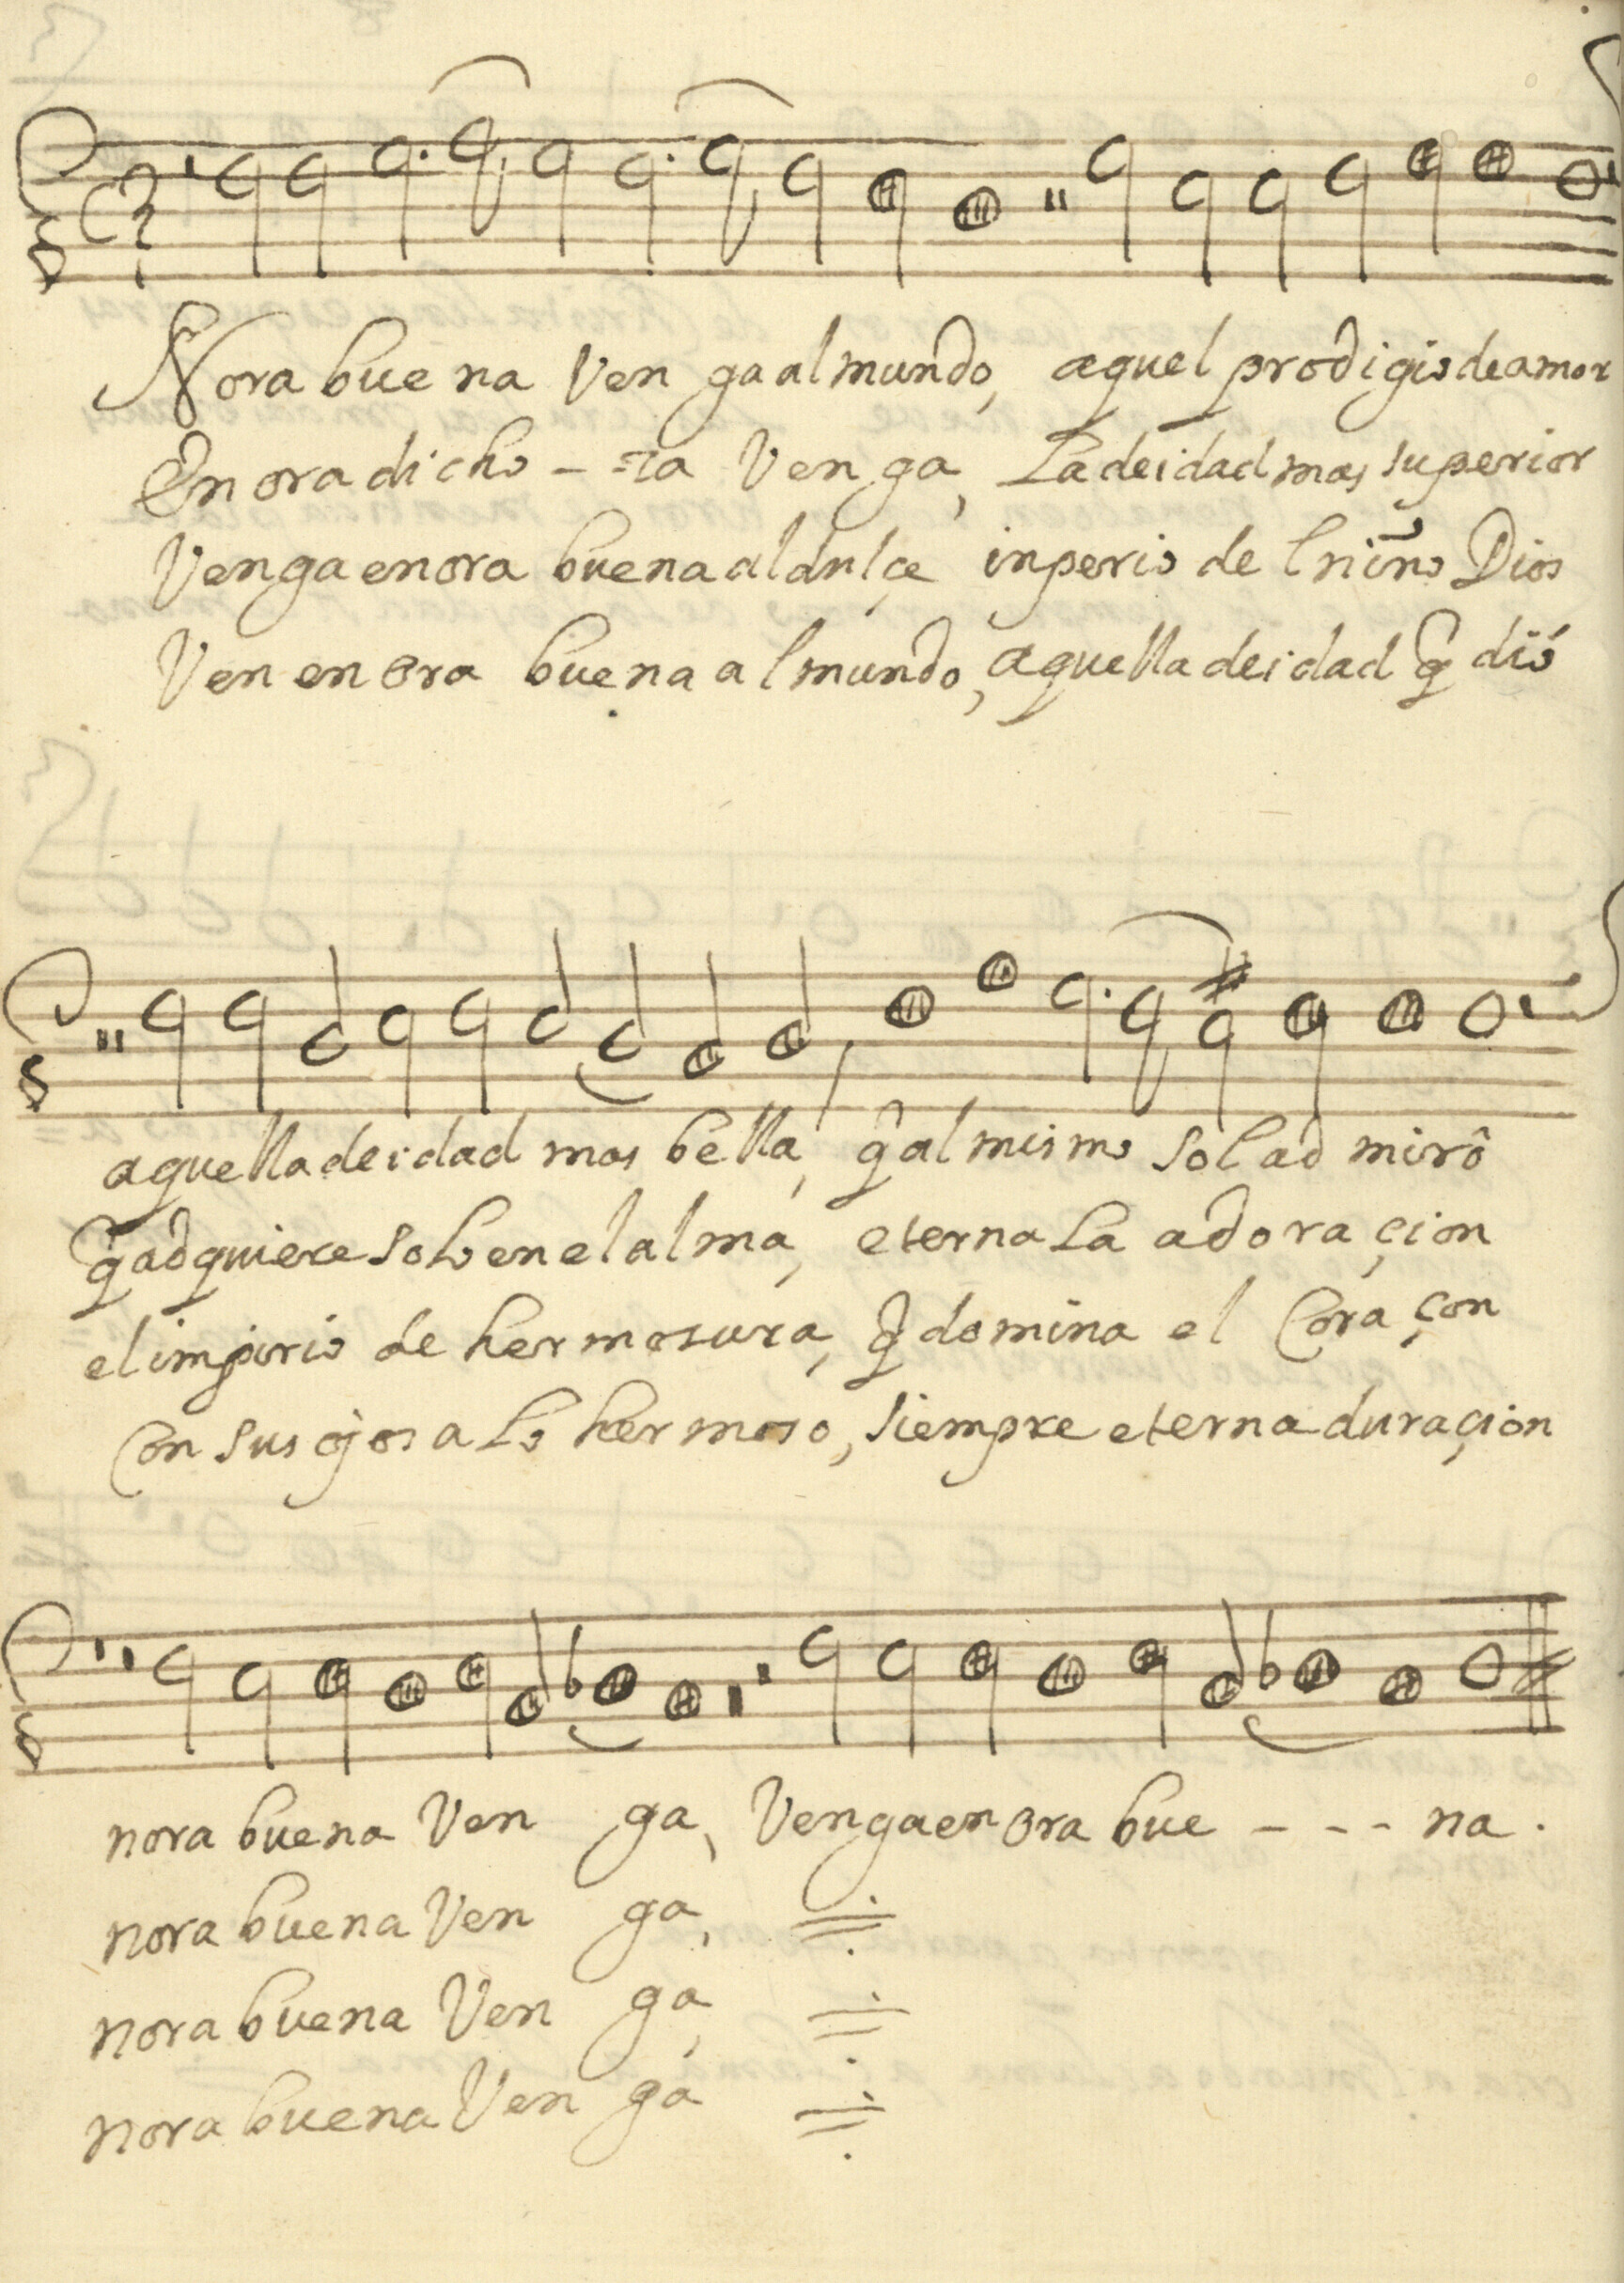 Nora bue na Ven ga al mundo, aquel prodigio de amor
En ora dicho - - za Ven ga, La deidad mas superior
Venga en ora buena al dulçe inperio de l niño Dios
Ven en ora buena a l mundo, aquella deidad q̃ dió
aquella deidad mas bella, q̃ al mismo Sol ad mirô
q̃ adquiere solo en el alma, eterna La adora çion
el imperio de hermosura, q̃ domina el Cora çon
Con sus ojos a Lo hermoso, siempre eterna duraçion
nora buena Ven ga, Venga en ora bue - - - na.
nora buena Ven ga,
nora buena Ven ga,
nora buena Ven ga